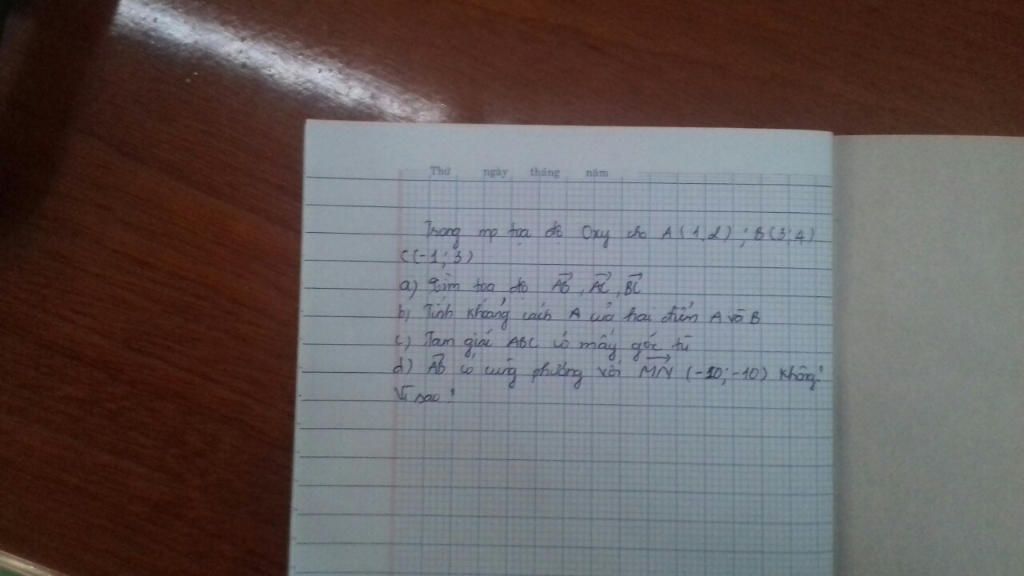 Thứ ngày tháng năm
Trong mp tọa độ Oxy cho A(1,2); B(3;4)
C(-1;3)
a) Tìm tọa độ AB, AC, BC
b) Tính khoảng cách A của hai điểm A và B
c) Tam giác ABC có mấy góc tù
d) AB có cùng phương với MN (-10;-10) không?
Vì sao?